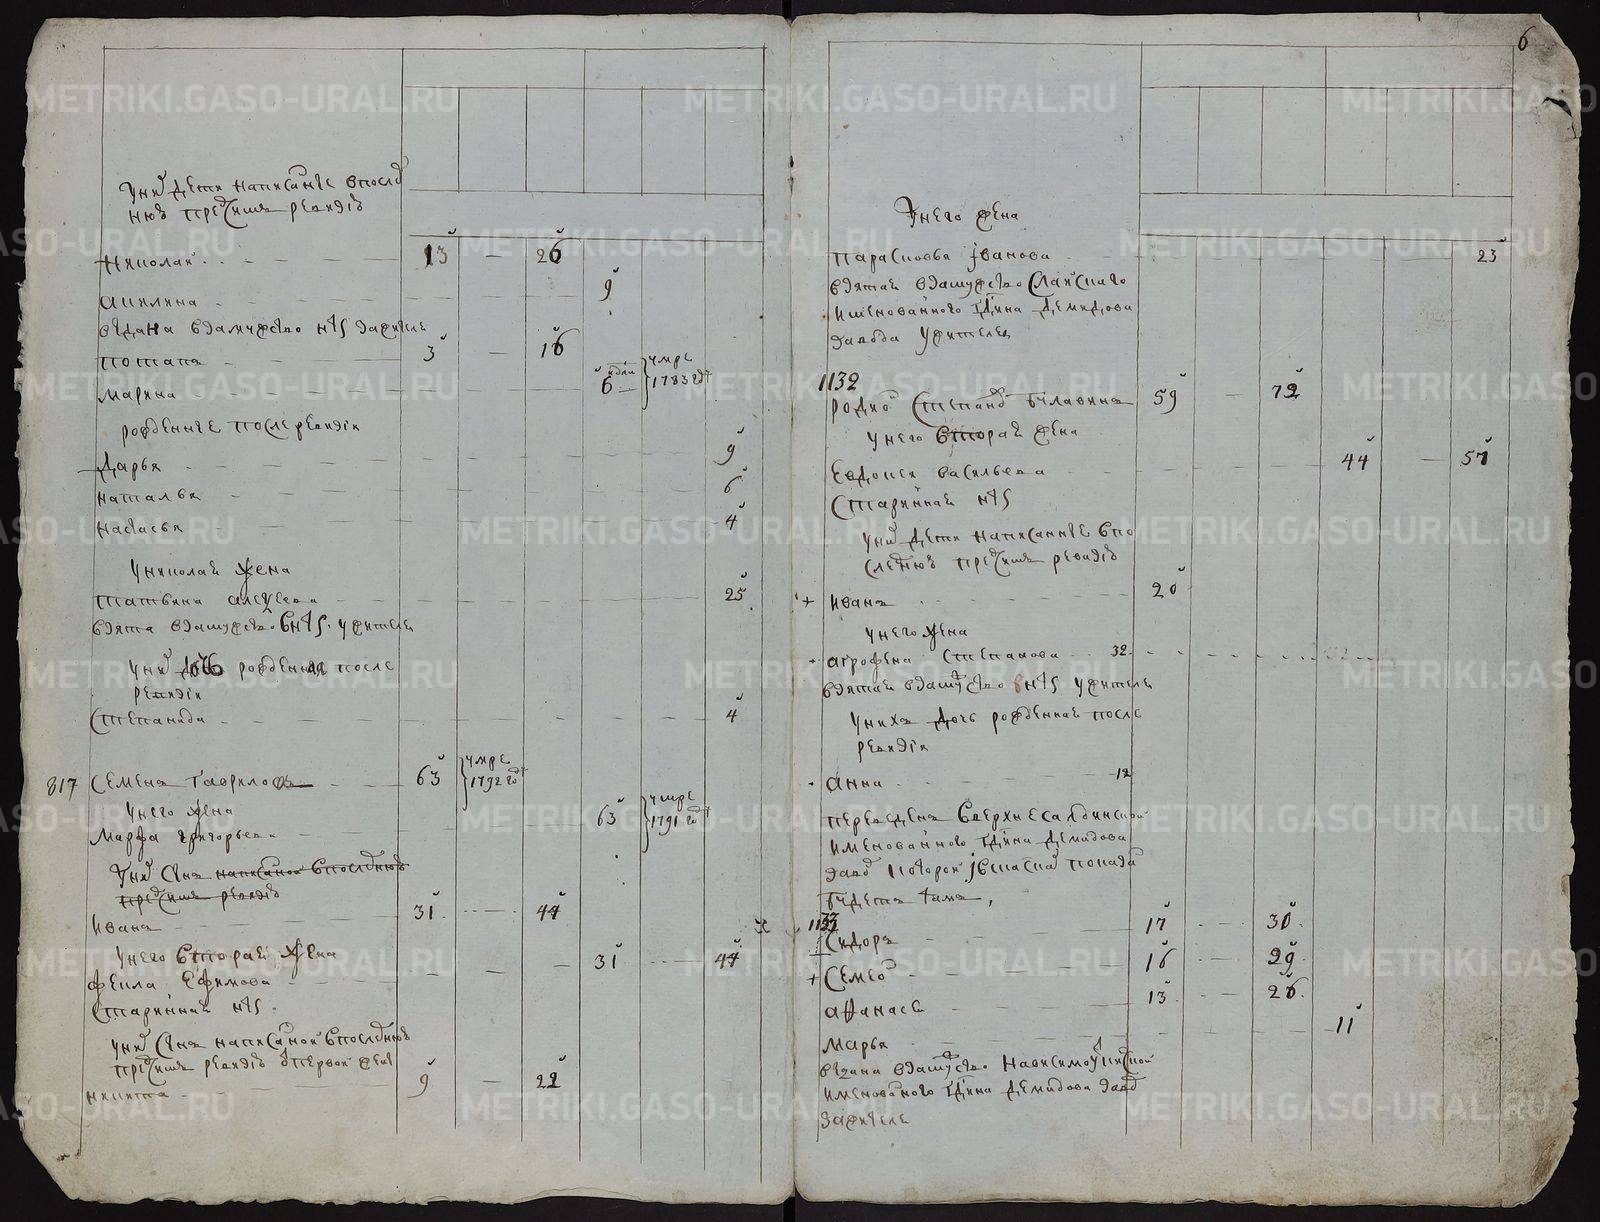 6
У них дети написанные в послед
нюю пред сим ревизию
Николай 13 — 26
Акилина 9
выдана в замужество
Потап 3 — 16
Марина 6 умре 1783 год
рожденные после ревизии
Дарья 9
Наталья 6
Настасья 4
У Николая жена
Татьяна Алексеева 25
взята в замужество
У них дочь рожденная после
ревизии
Степанида 4
817 Семен Гаврилов 63 умре 1792 год
У него жена
Марфа Григорьева 63 умре 1791 год
У них сын написаной в последнюю
пред сим ревизию
Иван 31 — 44
У него вторая жена
Фекла Ефимова 31 — 44
старинная
У них сын написаной в последнюю
пред сим ревизию от первой жены
Никита 9 — 22
У него жена
Парасковья Иванова 23
взятая в замужество
именованного гдина Демидова
завода у жителя
1132
Родион Степанов 59 — 72
У него вторая жена
Евдокия Васильева 44 — 57
старинная
У них дети написанные в по
следнюю пред сим ревизию
Иван 20
У него жена
Агрофена Степанова 32
взятая в замужество у жителя
У них дочь рожденная после
ревизии
Анна 12
переведен в Верхнесалдинской
именованного гдина Демидова
завод которой и в сказке показан
будет там,
1133
Сидор 17 — 30
Семен 16 — 29
Афанасей 13 — 26
Марья 11
выдана в замужество на Висимоуткинской
именованого гдина Демидова завод
за жителя
METRIKI.GASO-URAL.RU